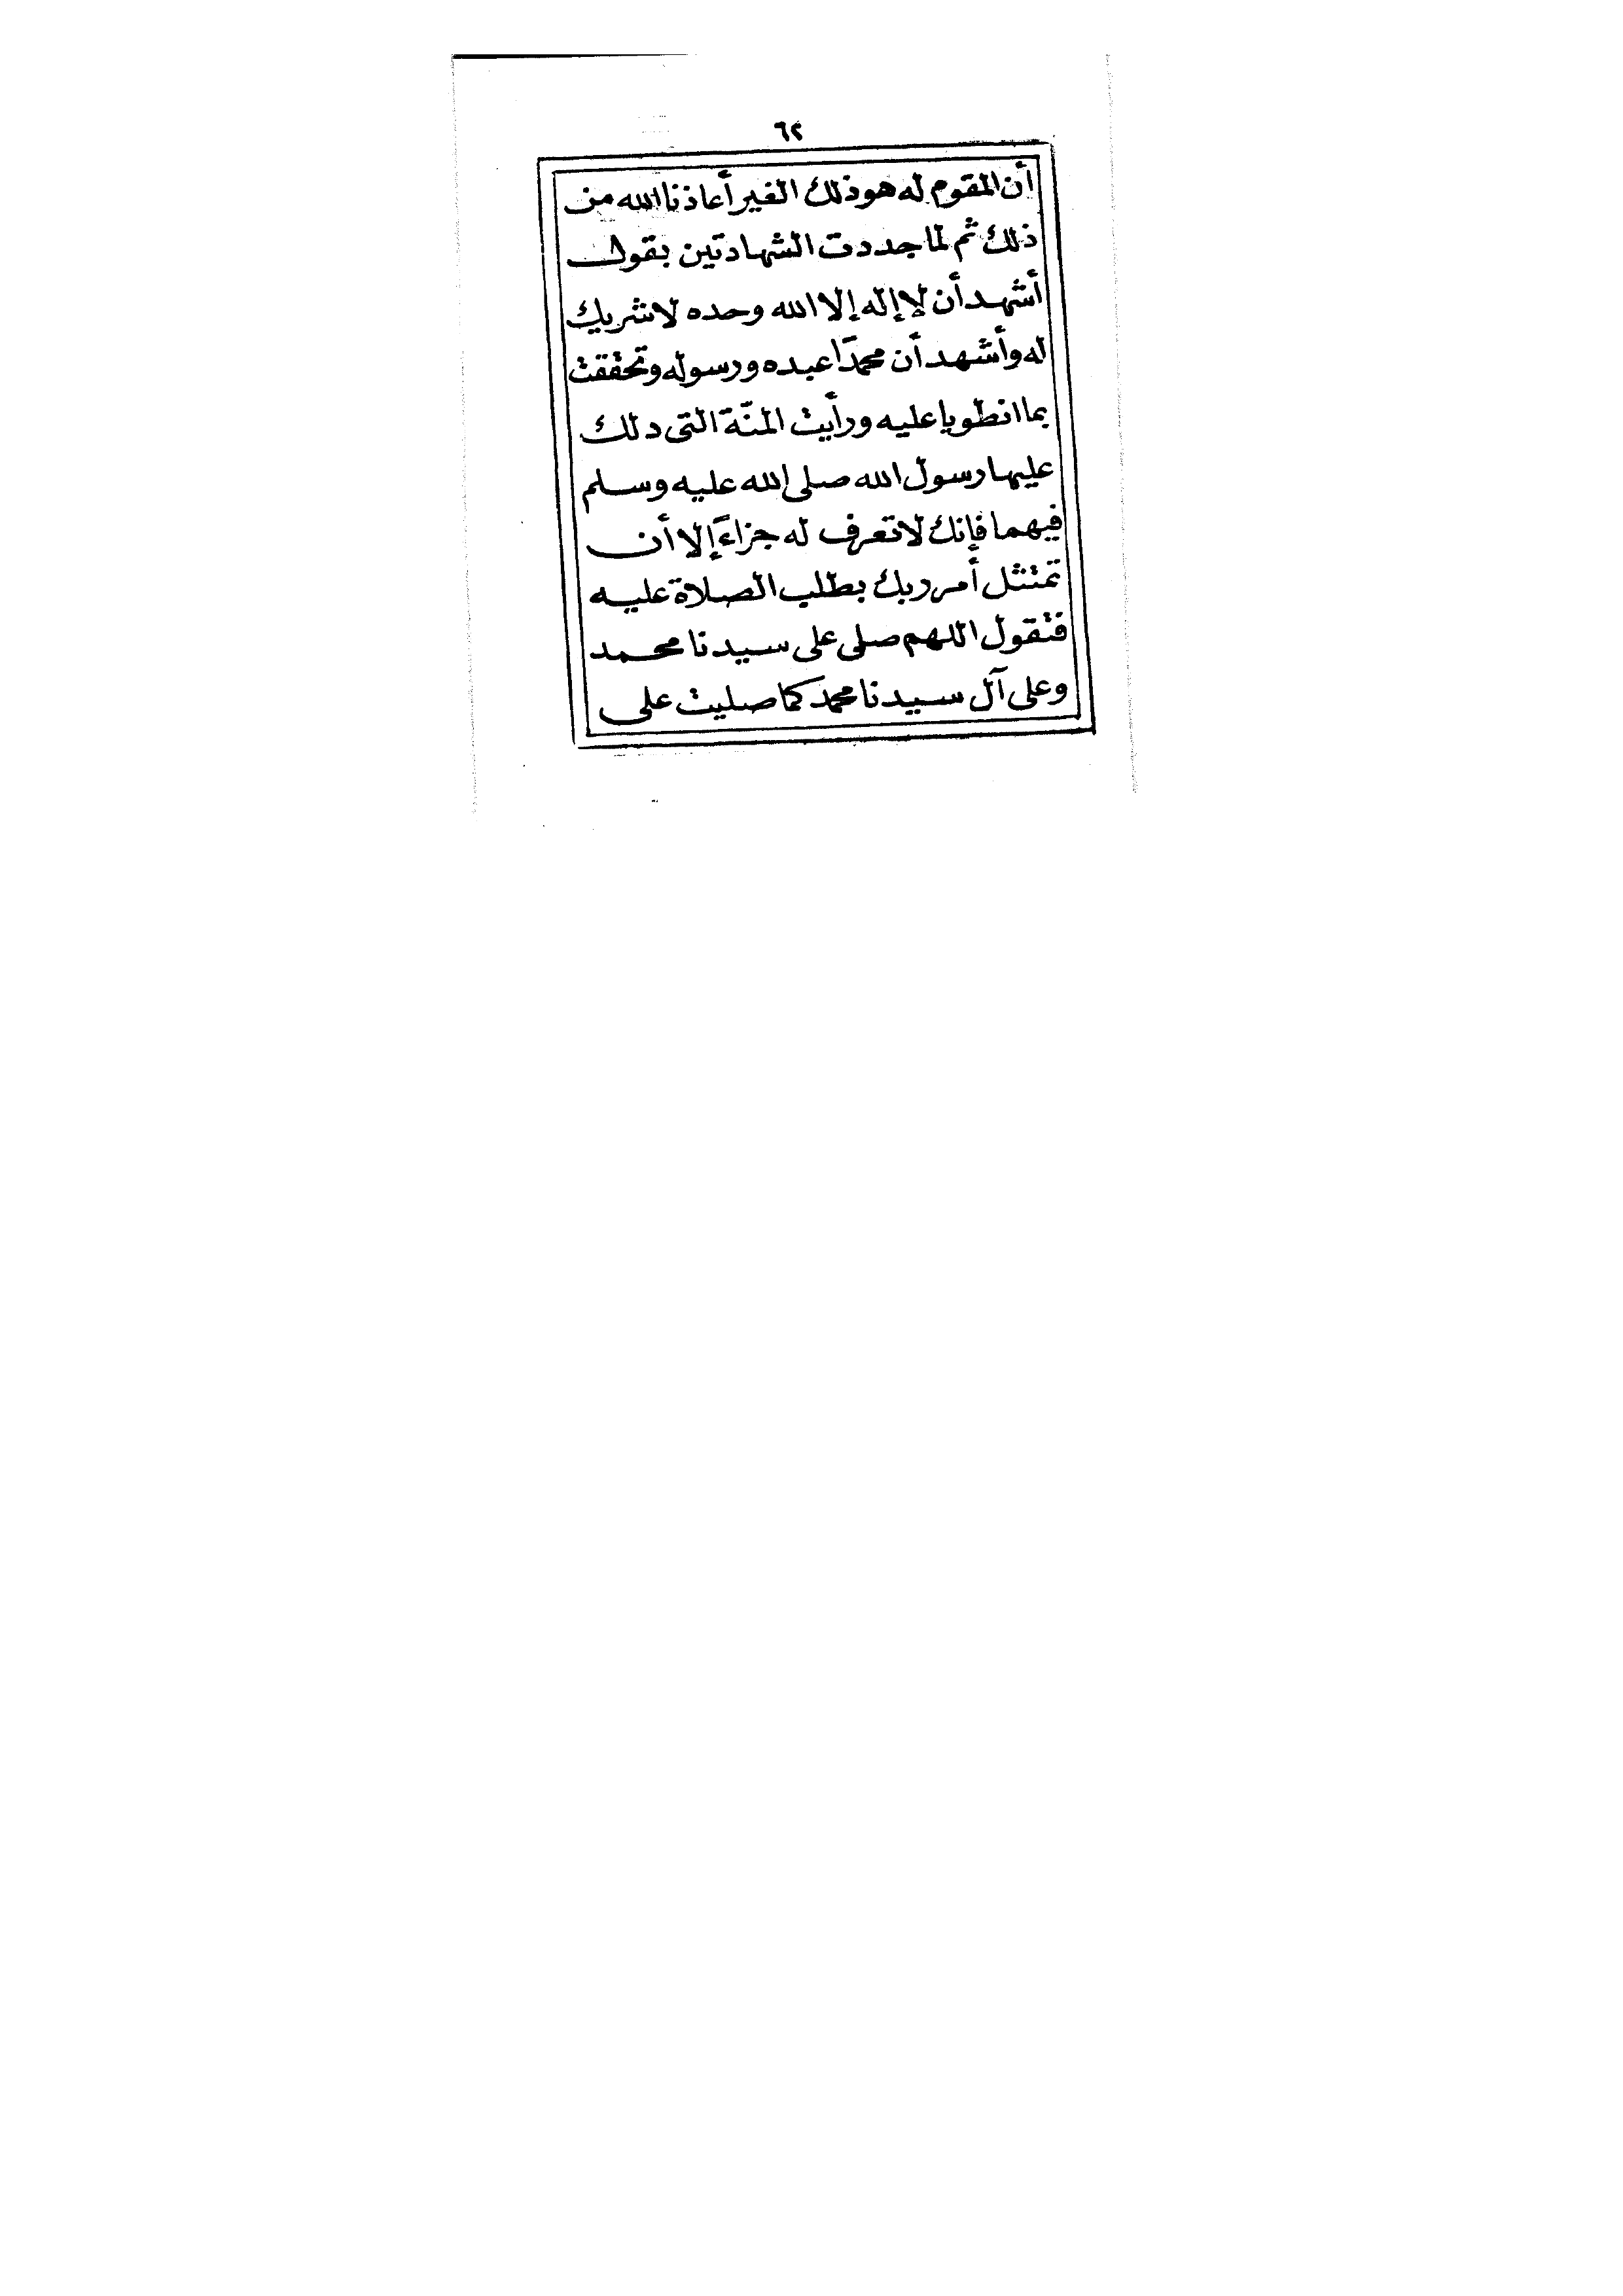 ٦٢
أن المقوم له هو ذلك الغير أعاذنا الله من
ذلك ثم لما جددت الشهادتين بقولك
أشهد أن لا إله إلا الله وحده لا شريك
له وأشهد أن محمدًا عبده ورسوله وتحققت
بما انطويا عليه ورأيت المنّة التى دلك
عليها رسول الله صلى الله عليه وسلم
فيهما فإنك لا تعرف له جزاءً إلا أن
تمتثل أمر ربك بطلب الصلاة عليه
فتقول اللهم صلى على سيدنا محمد
وعلى آل سيدنا محمد كما صليت على